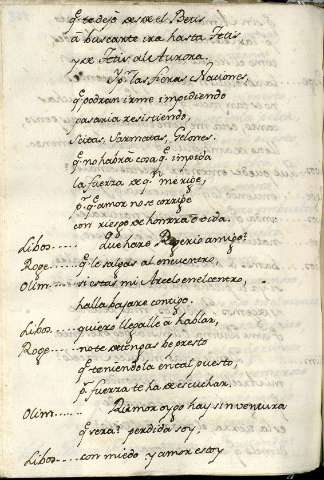 q̃ te dejo desde el Betis
a buscante ira hasta Tetis
y de Tetis al Aurora.
Y p̃r las fieras Naciones,
q̃ podran irme impidiendo
pasaria resistiendo,
Scitas, Sarmatas, Gelones.
q̃ no habrá cosa q̃ impida
la fuerza de q̃n me rige,
p̃r q̃ amor no se corrige
con riesgo de honrra o vida.
Libos..... Que haré Rogerio amigo?
Roge..... q̃ le salgas al encuentro,
Olim..... si estas, mi Arcelo en el centro,
halla bajare contigo.
Libos..... quiero llegalle á hablar,
Roge..... no te detengas be presto
q̃ teniendola en tal puesto,
p̃r fuerza te ha de escuchar.
Olim...... Rumor oygo hay sin ventura
q̃ sera? perdida soy.
Libos..... con miedo y amor estoy